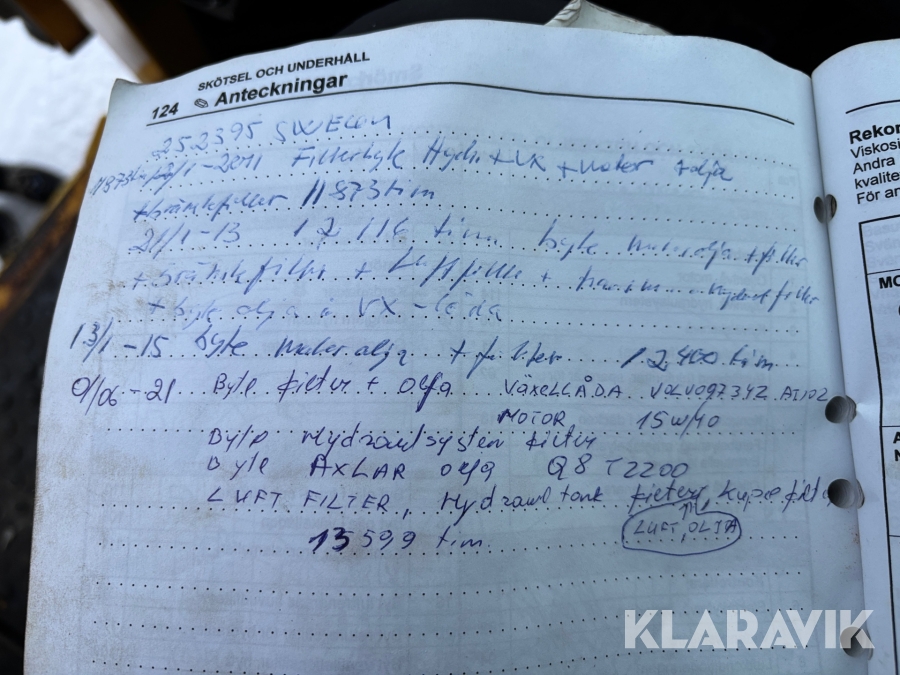 SKÖTSEL OCH UNDERHÅLL
124 Anteckningar
252395 SWECON
-2011 Filterbyte Hydr. + VX + motor + olja
+ bränslefilter 11873 tim
21/1-13 12 116 tim byte motorolja + filter
+ bränslefilter + Luftfilter +
+ byte olja i VX-låda
13/1-15 byte motorolja + filter 12.400 tim
/06-21 Byte filter + olja VÄXELLÅDA VOLVO 97342 AT102
MOTOR 15W/40
Byte Hydraulsystem filter
Byte AXLAR olja Q8 T2200
LUFT FILTER, Hydraul tank filter, Kupefilter
LUFT, OLJA
13599 tim
Rekor
Viskosi
Andra
kvalite
För an
MO
KLARAVIK